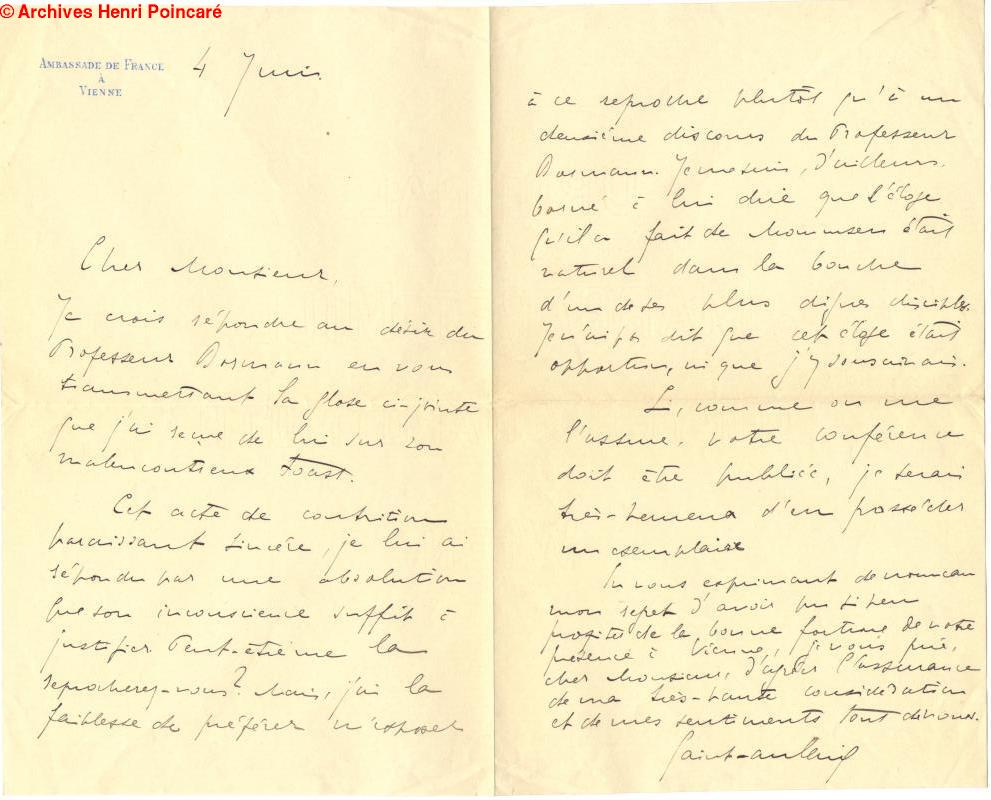 © Archives Henri Poincaré
AMBASSADE DE FRANCE
À
VIENNE
4 Juin.
Cher Monsieur,
Je crois répondre au désir du
Professeur Bormann en vous
transmettant la glose ci-jointe
que j'ai reçue de lui sur son
malencontreux toast.
Cet acte de contrition
paraissant sincère, je lui ai
répondu par une absolution
que son inconscience suffit à
justifier. Peut-être me la
reprocherez-vous? Mais, j'ai la
faiblesse de préférer m'exposer
à ce reproche plutôt qu'à un
deuxième discours du Professeur
Bormann. Je me suis, d'ailleurs,
borné à lui dire que l'éloge
qu'il a fait de Mommsen était
naturel dans la bouche
d'un de ses plus dignes disciples.
Je n'ai pas dit que cet éloge était
opportun, ni que j'y souscrivais.
Si, comme on me
l'assure, votre conférence
doit être publiée, je serais
très-heureux d'en posséder
un exemplaire
En vous exprimant de nouveau
mon regret d'avoir pu si peu
profiter de la bonne fortune de votre
présence à Vienne, je vous prie,
cher Monsieur, d'agréer l'assurance
de ma très-haute considération
et de mes sentiments tout dévoués.
Saint-Aulaire